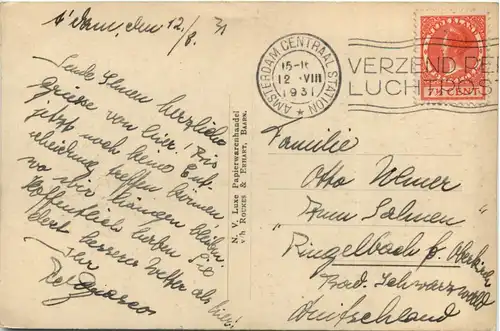 A'dam, den 12/8. 31
Sende Ihnen herzliche
Grüsse von hier. Bis
jetzt noch keine Ent-
scheidung treffen können,
wo wir hängen bleiben.
Hoffentlich haben Sie
dort besseres Wetter als hier.
Ihr
N. V. Luxe Papierwarenhandel
v/h Roukes & Erhart, Baarn.
AMSTERDAM CENTRAAL STATION
15-
12 VIII
1931
VERZEND PER
LUCHTPOST
NEDERLAND
7½ CENT
Familie
Otto
"Zum Salmen"
Ringelbach b. Oberkirch
Bad. Schwarzwald
Deutschland